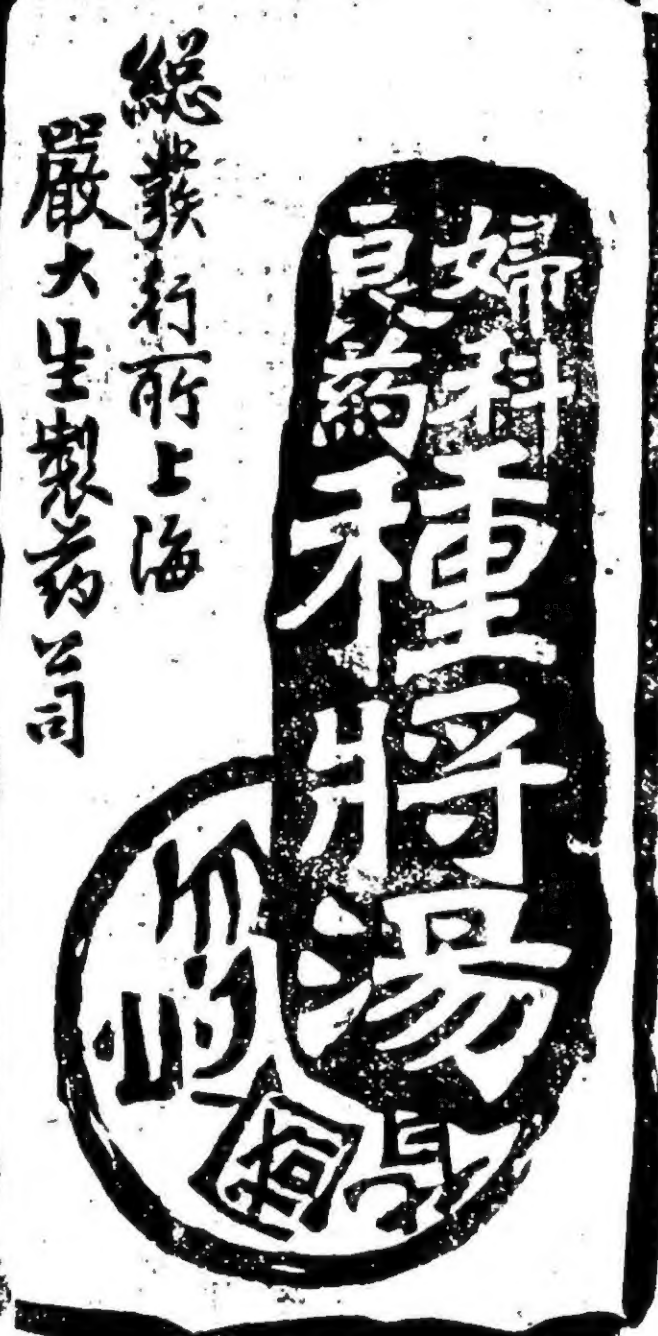 婦科
良葯
種將湯
緫發行所上海
嚴大生製药公司